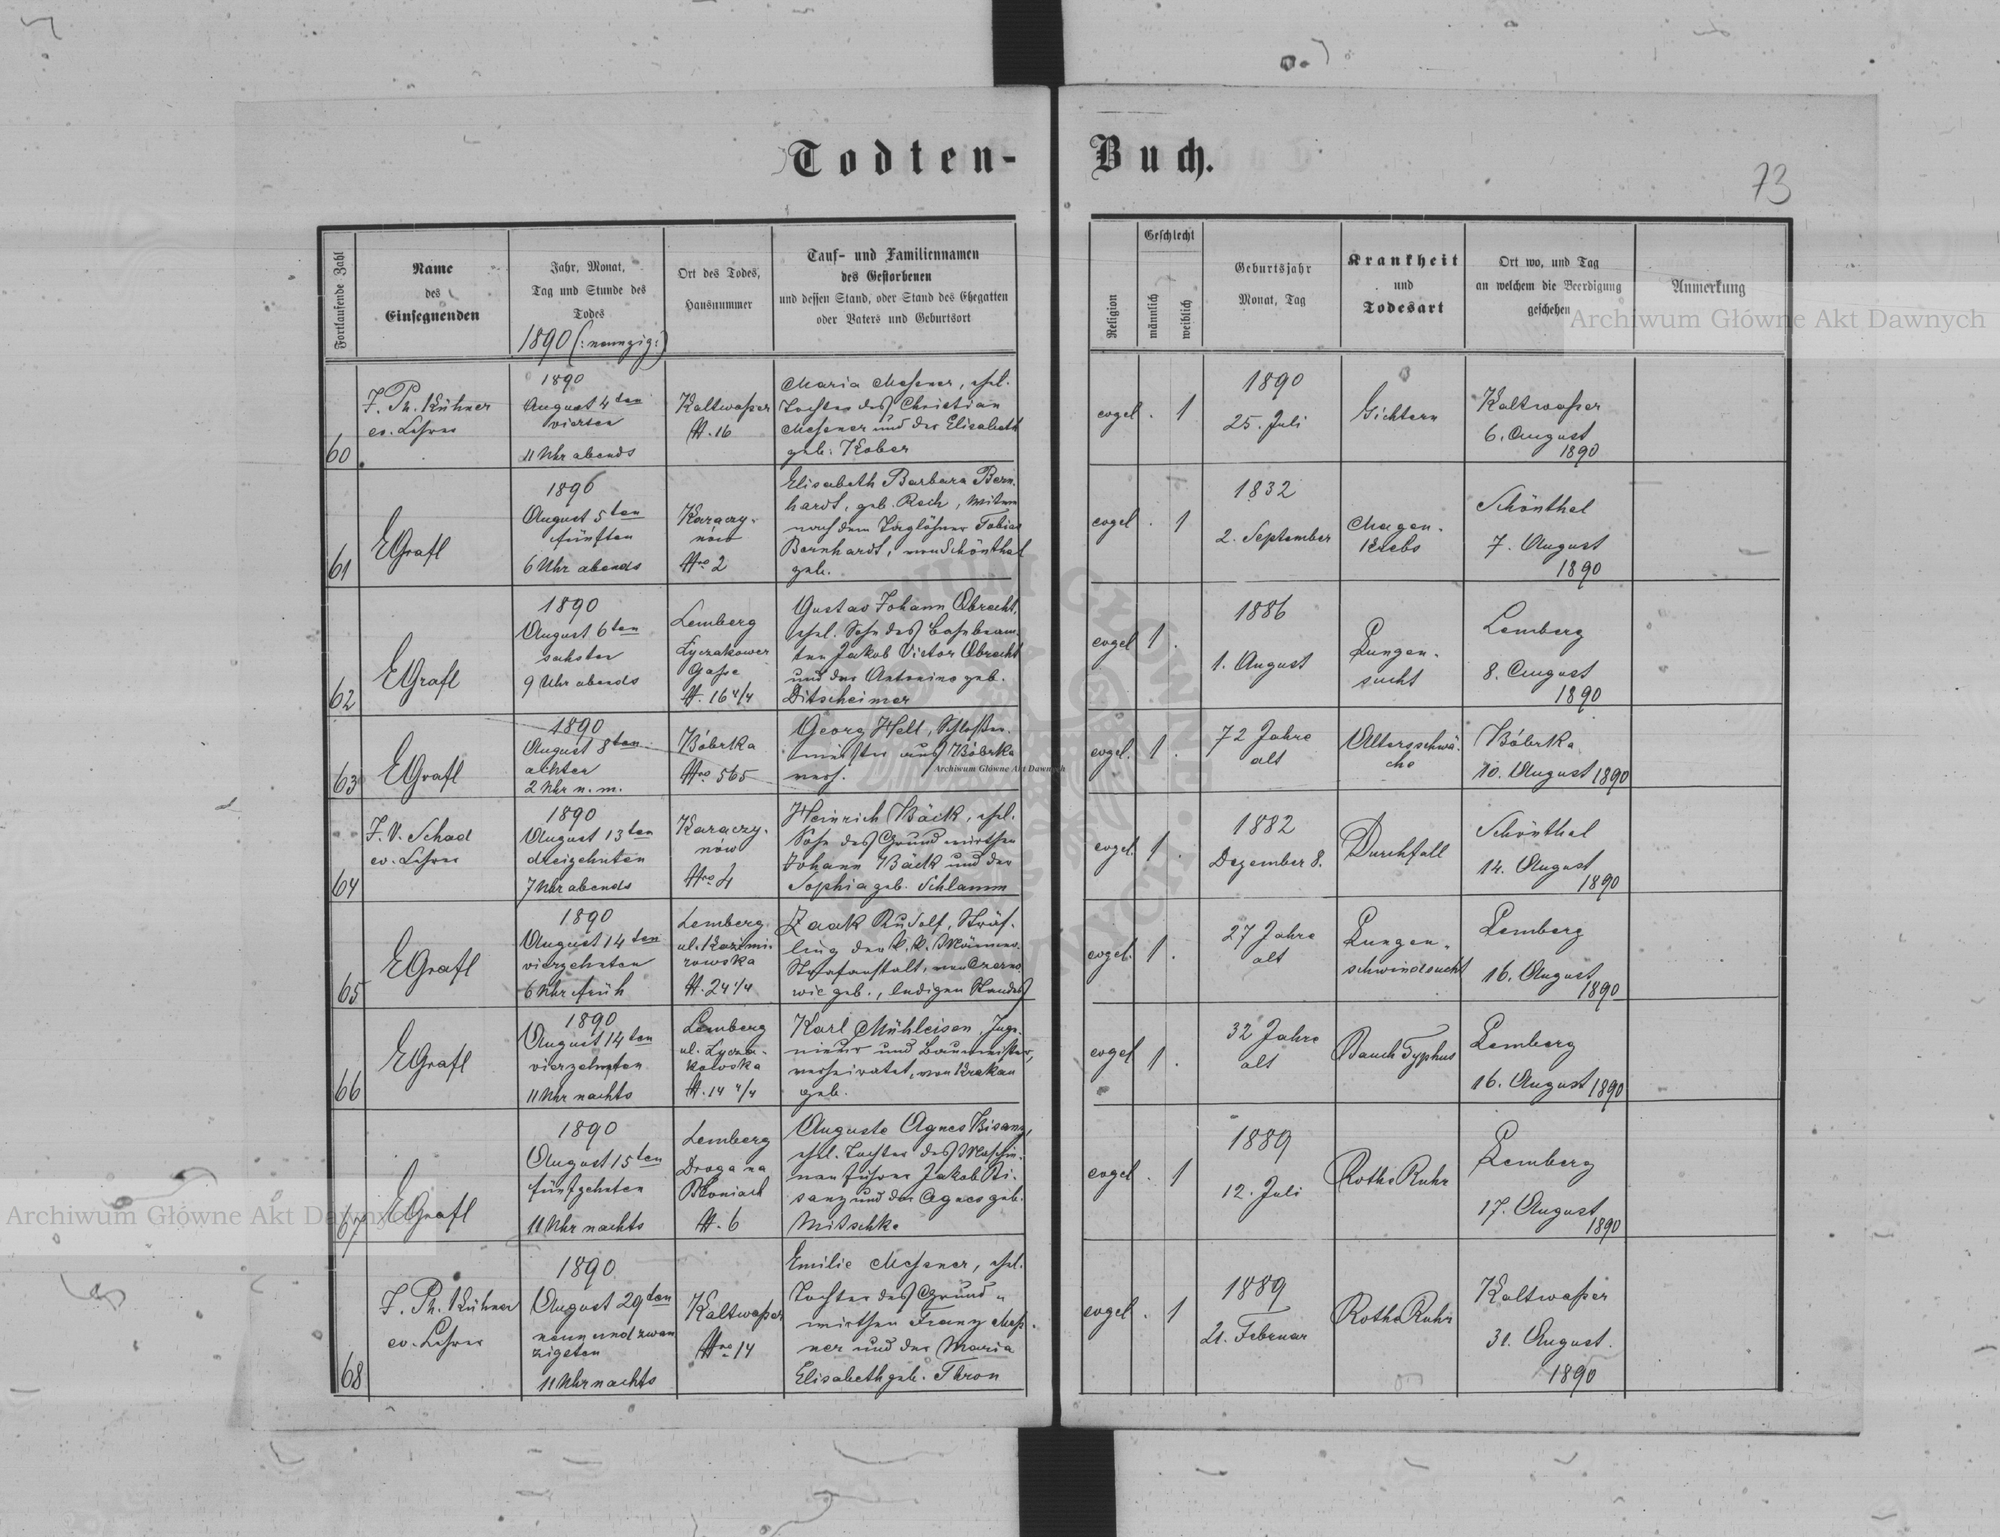 Todten-
Buch.
73
Fortlaufende Zahl
Name
des
Einsegnenden
Jahr, Monat,
Tag und Stunde des
Todes
1890 (:neunzig:)
Ort des Todes,
Hausnummer
Tauf- und Familiennamen
des Gestorbenen
und dessen Stand, oder Stand des Ehegatten
oder Vaters und Geburtsort
Religion
Geschlecht
männlich
weiblich
Geburtsjahr
Monat, Tag
Krankheit
und
Todesart
Ort wo, und Tag
an welchem die Beerdigung
geschehen
Anmerkung
60
J. Ph. Kühner
ev. Lehrer
1890
August 4ten
vierten
11 Uhr abends
Kaltwaßer
N. 16
Maria Meßner, ehel.
Tochter des Christian
Meßner und der Elisabeth
geb. Kober
evgel . 1
1890
25. Juli
Gichtern
Kaltwaßer
6. August
1890
61
EGrafl
1890
August 5ten
fünften
6 Uhr abends
Karaczy-
nów
Nro 2
Elisabeth Barbara Bern-
hardt, geb. Rech, Witwe
nach dem Taglöhner Tobias
Bernhardt, von Schönthal
geb.
evgel . 1
1832
2. September
Magen-
krebs
Schönthal
7. August
1890
62
EGrafl
1890
August 6ten
sechsten
9 Uhr abends
Lemberg
Łyczakower
Gaße
N. 16 4/4
Gustav Johann Obrecht,
ehel. Sohn des Bahnbeam-
ten Jakob Victor Obrecht
und der Antonina geb.
Ditscheimer
evgel 1 .
1886
1. August
Lungen-
sucht
Lemberg
8. August
1890
63
EGrafl
1890
August 8ten
achten
2 Uhr n. m.
Bóbrka
Nro 565
Georg Hell, Schloßer-
meister aus Bóbrka
verh.
evgel. 1 .
72 Jahre
alt
Altersschwä-
che
Bóbrka
10. August 1890
64
J. V. Schad
ev. Lehrer
1890
August 13ten
dreizehnten
7 Uhr abends
Karaczy-
nów
Nro 4
Heinrich Bäck, ehel.
Sohn des Grundwirthen
Johann Bäck und der
Sophia geb. Schlamm
evgel. 1 .
1882
Dezember 8.
Durchfall
Schönthal
14. August
1890
65
EGrafl
1890
August 14ten
vierzehnten
6 Uhr früh
Lemberg
ul. Kazimi-
rowska
N. 24 1/4
Zaak Rudolf, Sträf-
ling der k. k. Männer-
Strafanstalt, von Czerno-
wic geb., ledigen Standes
evgel. 1 .
27 Jahre
alt
Lungen-
schwindsucht
Lemberg
16. August
1890
66
EGrafl
1890
August 14ten
vierzehnten
11 Uhr nachts
Lemberg
ul. Lycza-
kowska
N. 14 4/4
Karl Mühleisen, Inge-
nieur und Baumeister,
verheiratet, von Krakau
geb.
evgel 1 .
32 Jahre
alt
Bauch Typhus
Lemberg
16. August 1890
67
EGrafl
1890
August 15ten
fünfzehnten
11 Uhr nachts
Lemberg
Droga na
Błoniach
N. 6
Auguste Agnes Bisanz,
ehel. Tochter des Maschi-
nenführer Jakob Bi-
sanz und der Agnes geb.
Mitschke
evgel . 1
1889
12. Juli
Rothe Ruhr
Lemberg
17. August
1890
68
J. Ph. Kühner
ev. Lehrer
1890
August 29ten
neun und zwan
zigsten
11 Uhr nachts
Kaltwaßer
Nro 14
Emilie Meßner, ehel.
Tochter des Grund-
wirthen Franz Meß-
ner und der Maria
Elisabeth geb. Thron
evgel . 1
1889
21. Februar
Rothe Ruhr
Kaltwaßer
31. August.
1890
Archiwum Główne Akt Dawnych
Archiwum Główne Akt Dawnych
Archiwum Główne Akt Dawnych